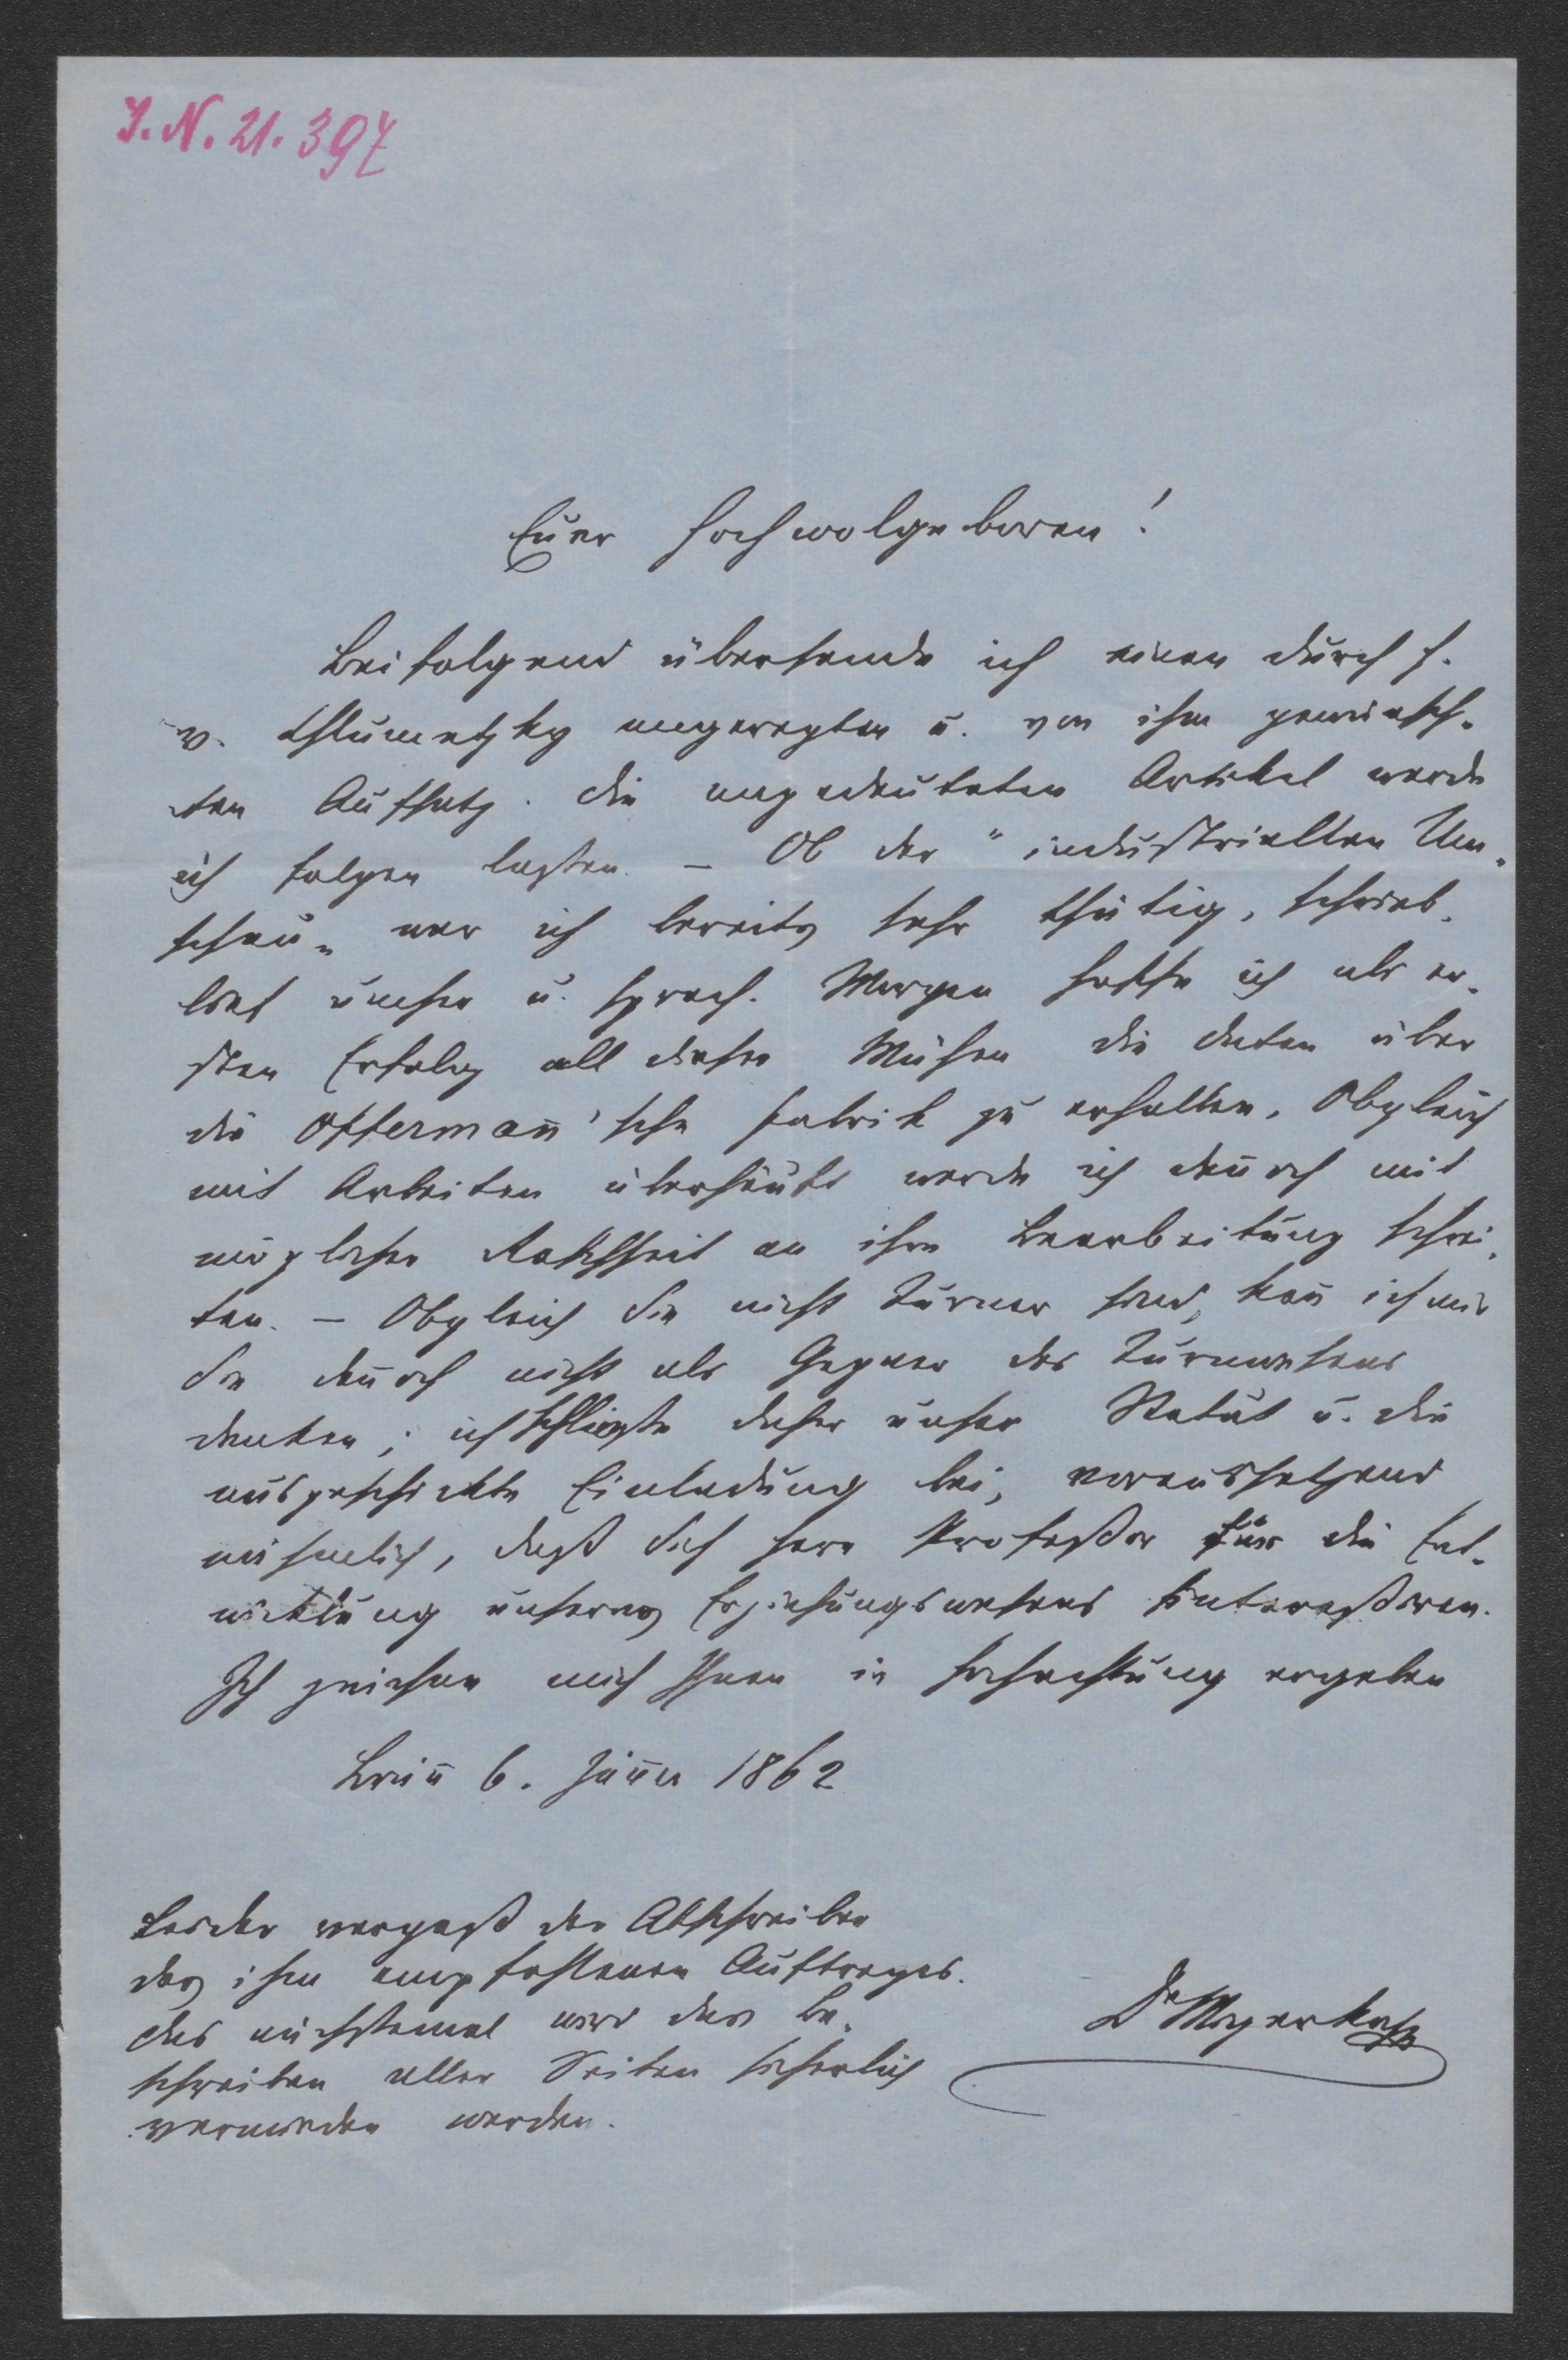 I.N. 21.397
Euer Hochwolgeboren!
Beifolgend übersende ich einen durch H.
v. Chlumetzky angeregten u. von ihm gewünsch-
ten Aufsatz. Die angedeuteten Artikel werde
ich folgen lassen. — Ob der "industriellen Um-
schau" war ich bereits sehr thätig, schrieb,
lief umher u. sprach. Morgen hoffe ich als er-
sten Erfolg all dieser Mühen die Daten über
die Offermañ'sche Fabrik zu erhalten. Obgleich
mit Arbeiten überhäuft werde ich deñoch mit
möglicher Raschheit an ihre Bearbeitung schrei-
ten. — Obgleich Sie nicht Turner sind, kañ ich mir
Sie deñoch nicht als Gegner des Turnwesens
denken; ich schließe daher unser Statut u. die
ausgeschickte Einladung bei, voraussetzend
nähmlich, daß Sich Herr Professor für die Ent-
wicklung unseres Erziehungswesens interessiren.
Ich zeichne mich Ihnen in Hochachtung ergeben
Brüñ 6. Jäñer 1862
Leider vergaß der Abschreiber
des ihm empfohlenen Auftrages.
Das nächstemal wird das Be-
schreiben aller Seiten sicherlich
vermieden werden.
Dr Mayer